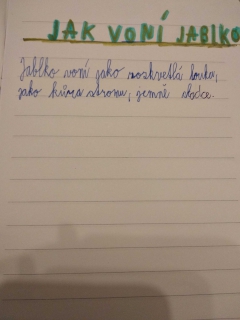 JAK VONÍ JABLKO
Jablko voní jako rozkvetlá louka,
jako kůra stromu, jemně sladce.